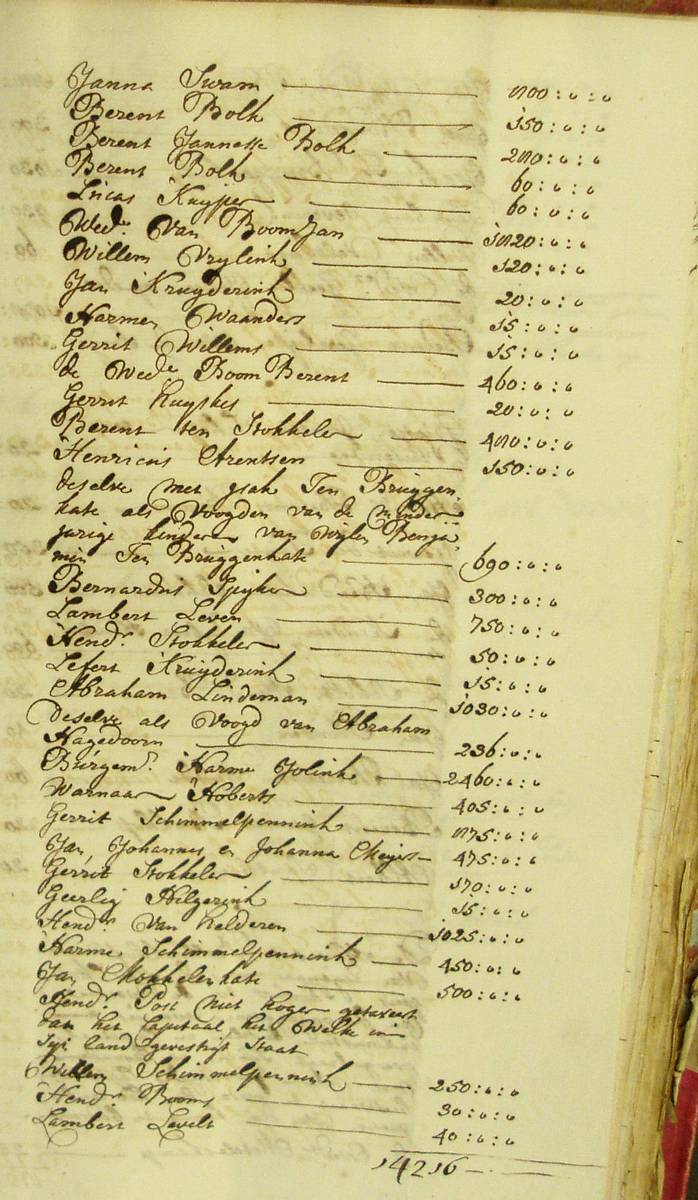 Janna Swam 800:0:0
Berent Bolk 150:0:0
Berent Jannesse Bolk 280:0:0
Berent Bolk 60:0:0
Lucas Kuyper 60:0:0
Wed.e Van Boom Jan 1820:0:0
Willem Vrylink 120:0:0
Jan Kruyderink 20:0:0
Harmen Waanders 15:0:0
Gerrit Willems 15:0:0
de Wed.e Boom Berent 460:0:0
Gerrit Kuyskes 20:0:0
Berent ten Stokkeler 480:0:0
Henricus Arentsen 150:0:0
deselve met Isak Ten Bruggen,
kate als Voogden van de minder=
jarige kinder van Wylen Benja,
min Ten Bruggenkate 690:0:0
Bernardus Spyker 300:0:0
Lambert Leven 750:0:0
Hend.r Stokkeler 50:0:0
Lefert Kruyderink 15:0:0
Abraham Lindeman 1030:0:0
deselve als Voogd van Abraham
Hagedoorn 236:0:0
Burgem.r Harme Jolink 2460:0:0
Warnaar Hoberts 405:0:0
Gerrit Schimmelpennink 875:0:0
Jan Johannes en Johanna Meijer 475:0:0
Gerrit Stokkeler 170:0:0
Geerlig Hilgerink 15:0:0
Hend.r Van Kelderen 1025:0:0
Harme Schimmelpennink 450:0:0
Jan Mokkelenkate 500:0:0
Hend.r Post niet hoger getaxeert
dan het Capitaal, het Welke in
Syn land gevestigt Staat
Willem Schimmelpennink 250:0:0
Hend.r Booms 30:0:0
Lambert Levelt 40:0:0
14216